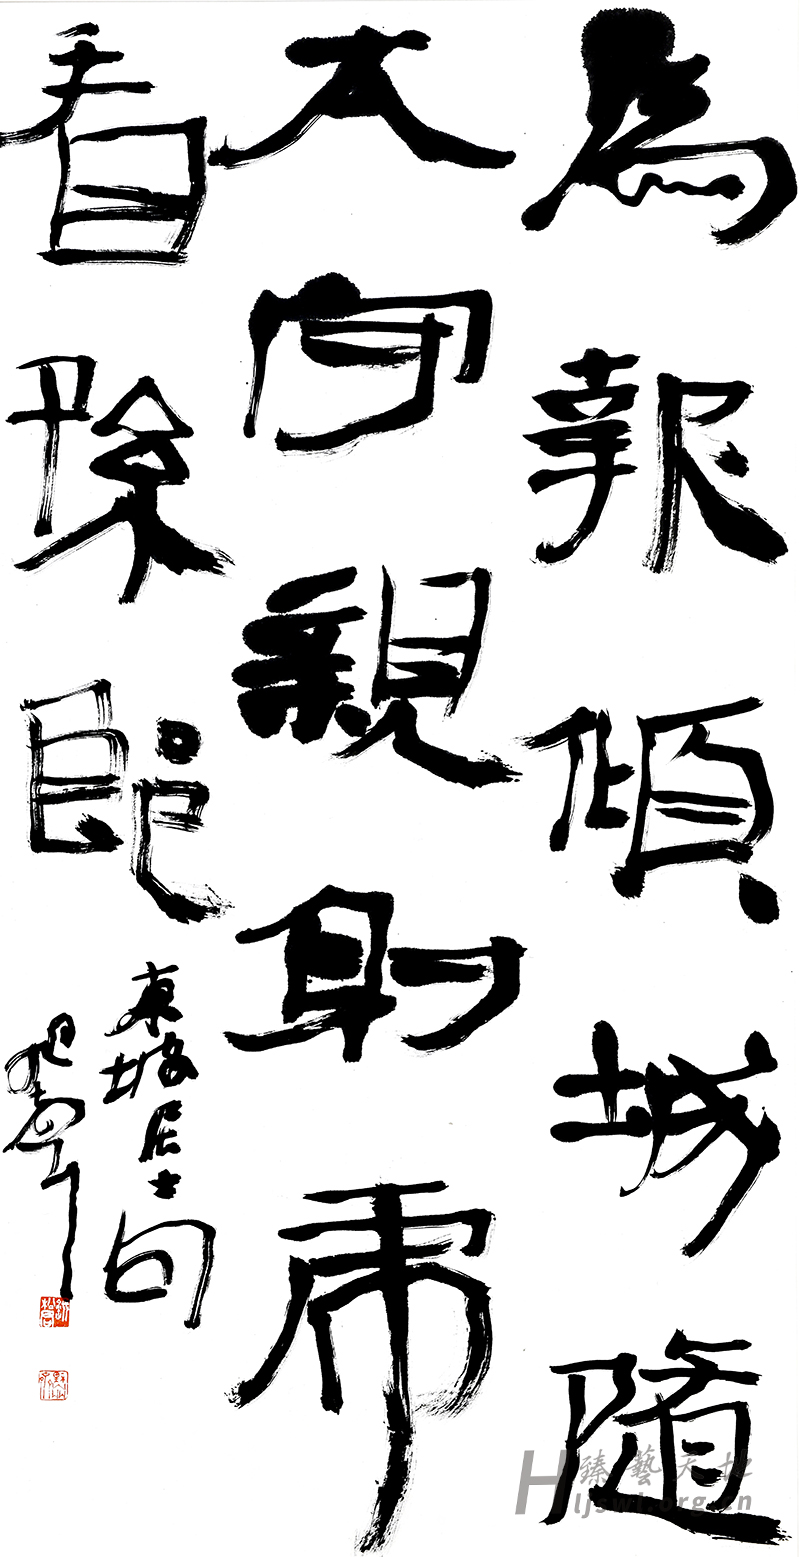 為報傾城隨
太守親射虎
看孫郎
東坡居士句
臻藝天地
Hljswl.org.cn